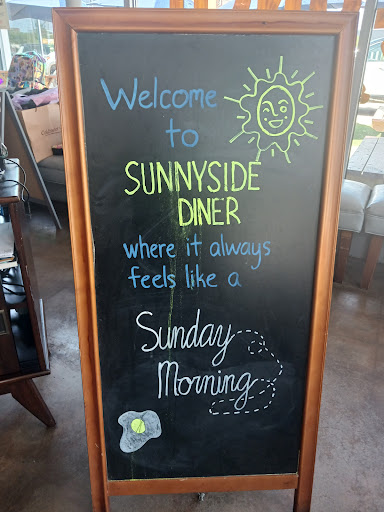 Welcome
to
SUNNYSIDE
DINER
where it always
feels like a
Sunday
Morning